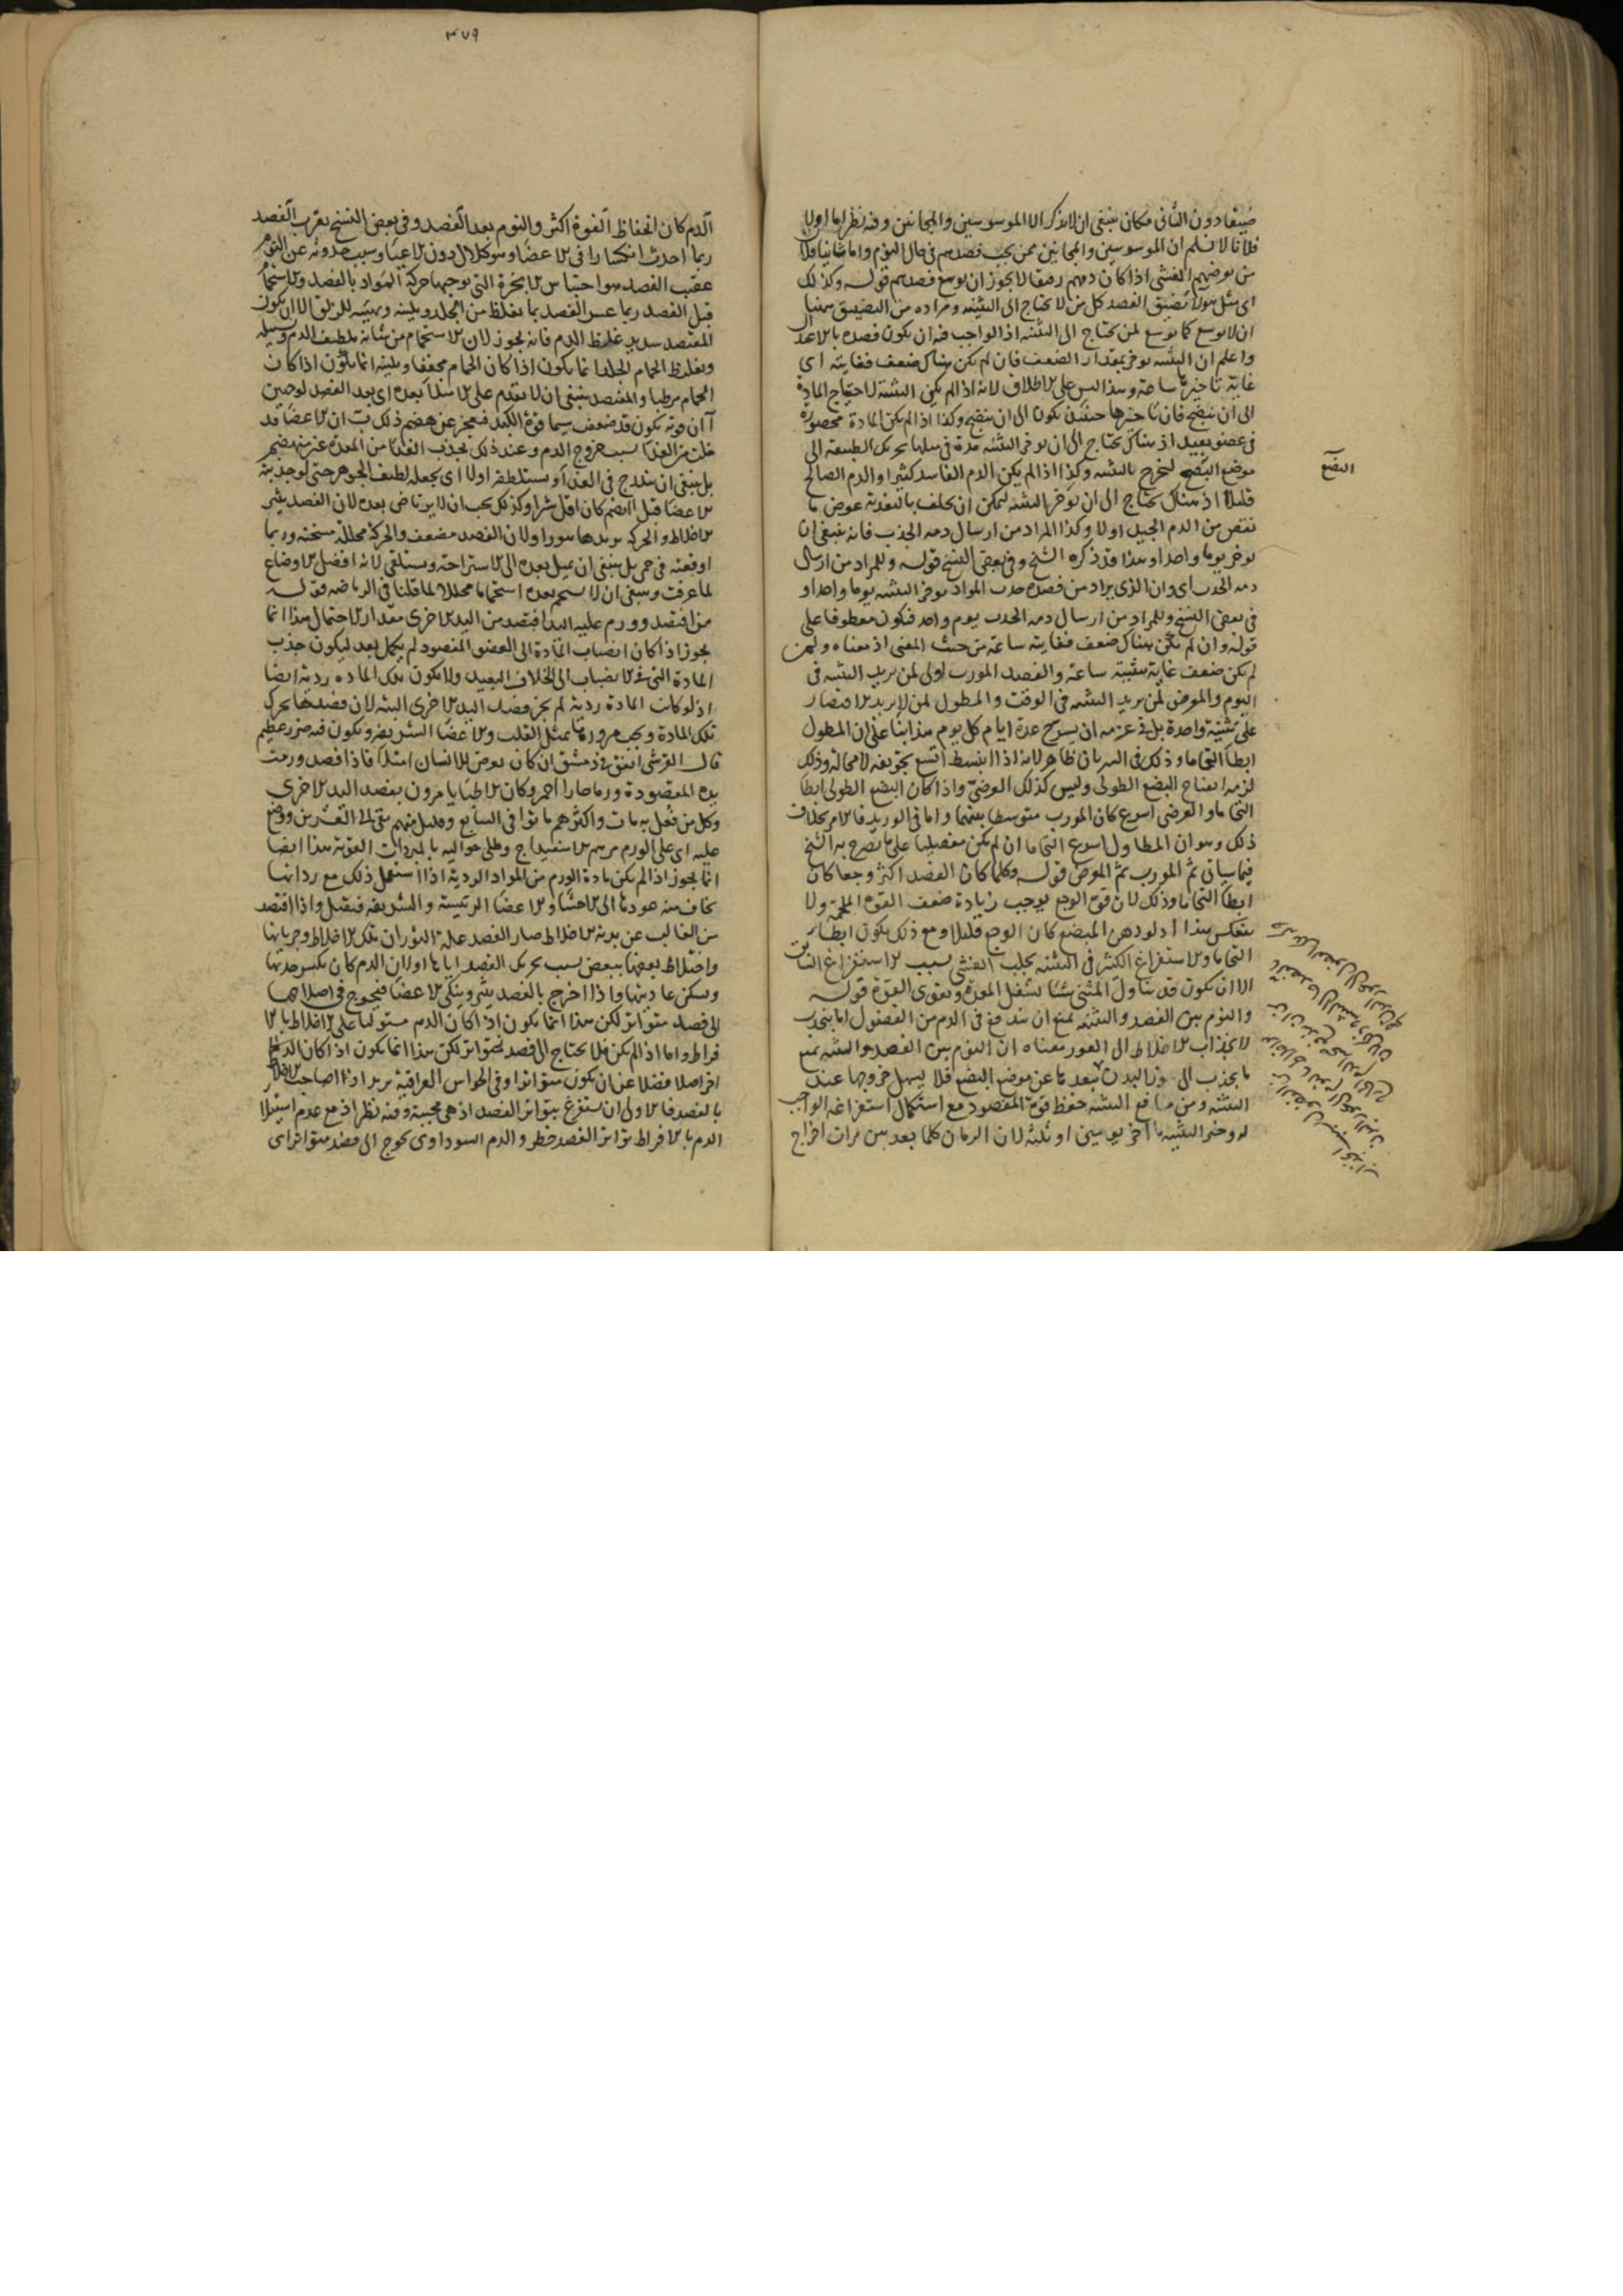 ضيقا دون الثانى فكان ينبغى ان لا يذكر الا الموسوسين والمجانين وفيه نظر اما اولا
فلانا لا نسلم ان الموسوسين والمجانين ممن يجب فصدهم فى حال النوم واما ثانيا فلان
من يعرضهم الغشى اذا كان دمهم رقيقا لا يجوز ان يوسع فصدهم قوله وكذلك
اى مثل هولا تضييق الفصد كل من لا يحتاج الى التثنية ومراده من التضييق ههنا
ان لا يوسع كما يوسع لمن يحتاج الى التثنية اذ الواجب فيه ان يكون فصده بالاعتدال
واعلم ان التثنية يوخر بمقدار الضعف فان لم يكن هناك ضعف فغايته اى
غاية تاخيرها ساعة وهذا ليس على الاطلاق لانه اذا لم يكن التثنية لاحتياج المادة
الى ان ينضج فان تاخيرها حينئذ يكون الى ان ينضج وكذا اذا لم يكن المادة محصورة
فى عضو بعيد اذ هناك يحتاج الى ان يوخر التثنية مدة فى مثلها يحرك الطبيعة الى
موضع البضع ليخرج بالتثنية وكذا اذا لم يكن الدم الفاسد كثيرا والدم الصالح
قليلا اذ هناك يحتاج الى ان يوخر التثنية ليمكن ان يخلف بالتغذية عوض ما
نقص من الدم الجيد اولا وكذا المراد من ارسال دمه الجذب فانه ينبغى ان
يوخر يوما واحدا وهذا قد ذكره الشيخ وفى بعض النسخ قوله وللمراد من ارسال
دمه الجذب اى وان الذى يراد من فصده جذب المواد يوخر التثنية يوما واحدا و
فى بعض النسخ وللمراد من ارسال دمه الجذب يوم واحد فيكون معطوفا على
قوله وان لم يكن هناك ضعف فغايته ساعة من حيث المعنى اذ معناه ولمن
لم يكن ضعف غاية تثنيته ساعة والفصد المورب اولى لمن يريد التثنية فى
اليوم والمعرض لمن يريد التثنية فى الوقت والمطول لمن لا يريد الاقتصار
على تثنية واحدة بل فى عزمه ان يسرح عدة ايام كل يوم هذا بناء على ان المطول
ابطأ التحاما وذلك فى الشريان ظاهر لانه اذا انبسط اتسع تجويفه لا محالة وذلك
لزمه انفتاح البضع الطولى وليس كذلك العرضى واذا كان البضع الطولى ابطأ
التحاما والعرضى اسرع كان المورب متوسطا بينهما واما فى الوريد فالامر بخلاف
ذلك وهو ان المطاول اسرع التحاما ان لم يكن مفصليا على ما يصرح به الشيخ
فيما سياتى ثم المورب ثم المعرض قوله وكلما كان الفصد اكثر وجعا كان
ابطأ التحاما وذلك لان قوة الوجع يوجب زيادة ضعف القوة الملحمة ولا
ينعكس هذا اذ لو دهن المبضع كان الوجع قليلا ومع ذلك يكون ابطأ
التحاما والاستفراغ الكثير فى التثنية يجلب الغشى بسبب الاستفراغ السابق
الا ان يكون قد تناول المثنى شيئا يشغل المعدة ويقوى القوة قوله
والنوم بين الفصد والتثنية يمنع ان يندفع فى الدم من الفضول ما ينجذب
لانجذاب الاخلاط الى الغور معناه ان النوم بين الفصد والتثنية يمنع
ما يجذب الى غور البدن يبعد ما عن موضع البضع فلا يسهل خروجها عند
التثنية ومن منافع التثنية حفظ قوة المقصود مع استكمال استفراغه الواجب
له وخير التثنية ما اخر يومين او ثلثة لان الزمان كلما بعد بين مرات اخراج
البضع
٣٧٩
الدم كان انحفاظ القوة اكثر والنوم بعد الفصد وفى بعض النسخ بقرب الفصد
ربما احدث انكسارا فى الاعضا وهو كلال دون الاعيا وسبب حدوثه عن النوم
عقيب الفصد هو احتباس الابخرة التى توجهها حركة المواد بالفصد والاستحمام
قبل الفصد ربما عسر الفصد بما يغلظ من الجلد ويلينه ويهيئه للزلق الا ان يكون
المفتصد شديد غلظ الدم فانه يجوز لان الاستحمام من شانه تلطيف الدم وتسييله
وتغليظ الحمام الجلد انما يكون اذا كان الحمام مجففا وتليينه انما يكون اذا كان
الحمام مرطبا والمفتصد ينبغى ان لا يقدم على الامتلا بعده اى بعد الفصد لوجهين
آ ان قوته يكون قد ضعف سيما قوة الكبد فيعجز عن هضم ذلك ب ان الاعضا قد
خلت من الغذا بسبب خروج الدم وعند ذلك يجذب الغذا من المعدة غير منهضم
بل ينبغى ان يتدرج فى الغذا ويستلطفه اولا اى يجعله لطيف الجوهر حتى لو جذبته
الاعضا قبل الهضم كان اقل شرا وكذلك يجب ان لا يرتاض بعده لان الفصد يثير
الاخلاط والحركة يزيدها ثورا ولان الفصد مضعف والحركة محللة مسخنة وربما
اوقعته فى حمى بل ينبغى ان يميل بعده الى الاستراحة ويستلقى لانه افضل الاوضاع
لما عرفت وينبغى ان لا يستحم بعده استحماما محللا لما قلنا فى الرياضة قوله
من افتصد وورم عليه اليد افتصد من اليد الاخرى مقدار الاحتمال هذا انما
يجوز اذا كان انصباب المادة الى العضو المفصود لم يكمل بعد ليكون جذب
المادة التى فى الانصباب الى الخلاف البعيد ولا يكون تلك المادة ردية ايضا
اذ لو كانت المادة ردية لم يجز فصد اليد الاخرى البتة لان فصدها يحرك
تلك المادة ويجب مرورها بمثل القلب والاعضا الشريفة ويكون فيه ضرر عظيم
قال القرشى اتفق فى دمشق ان كان يعرض للانسان امتلا فاذا فصد ورمت
يده المفصودة ورما حارا احمر وكان الاطبا يامرون بفصد اليد الاخرى
وكل من فعل به مات واكثرهم ماتوا فى السابع وقليل منهم بقى الى العشرين ووضع
عليه اى على الورم مرهم الاسفيداج وطلى حواليه بالمبردات القوية هذا ايضا
انما يجوز اذا لم يكن مادة الورم من المواد الردية اذا استعمل ذلك مع رداتها
يخاف منه عودها الى الاحشا والاعضا الرئيسة والشريفة فيقتل واذا افتصد
من الغالب عن بدنه الاخلاط صار الفصد علة لثوران تلك الاخلاط وجريانها
واختلاط بعضها ببعض بسبب تحريك الفصد اياها اولان الدم كان يكسر حدتها
ويسكن عاديتها واذا اخرج بالفصد يثير وينكى الاعضا فيحوج فى اصلاحها
الى فصد متواتر لكن هذا انما يكون اذا كان الدم مستوليا على الاخلاط بالا
فراط واما اذا لم يكن فلا يحتاج الى فصد متواتر لكن هذا انما يكون اذا كان الدم
اخر اصلا فضلا عن ان يكون متواترا وفى الحواس العراقية يريد اذا صاحب الاخلاط
بالفصد فالاولى ان يستفرغ بتواتر الفصد اذ هى محبسة وفيه نظر اذ مع عدم استيلا
الدم بالافراط تواتر الفصد خطر والدم السوداوى يحوج الى فصد متواتر اى